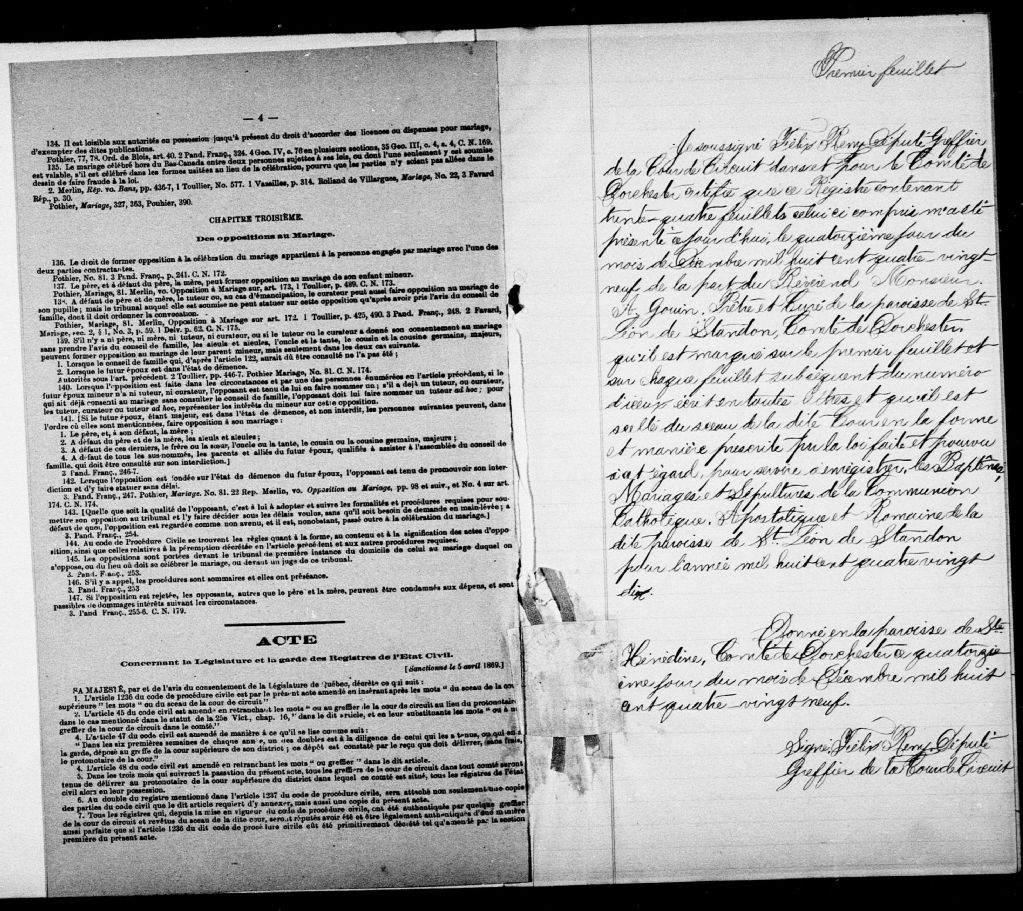 — 4 —
134. Il est loisible aux autorités en possession jusqu'à présent du droit d'accorder des licences ou dispenses pour mariage,
d'exempter des dites publications.
Pothier, 77, 78. Ord. de Blois, art. 40. 2 Pand. Franç., 324. 4 Geo. IV, c. 76 en plusieurs sections, 35 Geo. III, c. 4, s. 4, C. N. 169.
135. Le mariage célébré hors du Bas-Canada entre deux personnes sujettes à ses lois, ou dont l'une seulement y est soumise
est valable, s'il est célébré dans les formes usitées au lieu de la célébration, pourvu que les parties n'y soient pas allées dans le
dessin de faire fraude à la loi.
2. Merlin, Rép. vo. Bans, pp. 436-7, 1 Toullier, No. 577. 1 Vaseilles, p. 314. Rolland de Villargues, Mariage, No. 22, 3 Favard
Rép., p. 30.
Pothier, Mariage, 327, 363, Pouhier, 390.
CHAPITRE TROISIÈME.
Des oppositions au Mariage.
136. Le droit de former opposition à la célébration du mariage appartient à la personne engagée par mariage avec l'une des
deux parties contractantes.
Pothier, No. 81. 3 Pand. Franç., p. 241. C. N. 172.
137. Le père, et à défaut du père, la mère, peut former opposition au mariage de son enfant mineur.
Pothier, Mariage, 81. Merlin, vo. Opposition à Mariage sur art. 173, 1 Toullier, p. 489. C. N. 173.
138. A défaut de père et de mère, le tuteur ou, au cas d'émancipation, le curateur peut aussi faire opposition au mariage de
son pupille; mais le tribunal auquel elle est soumise ne peut statuer sur cette opposition qu'après avoir pris l'avis du conseil de
famille, dont il doit ordonner la convocation.
Pothier, Mariage, 81. Merlin, Opposition à Mariage sur art. 172. 1 Toullier, p. 425, 490. 3 Pand. Franç., 248. 2 Favard,
Mariage, sec. 2, § 1, No. 3, p. 59. 1 Delv. p. 62. C. N. 175.
139. S'il n'y a ni père, ni mère, ni tuteur, ni curateur, ou si le tuteur ou le curateur a donné son consentement au mariage
sans prendre l'avis du conseil de famille, les aïeuls et aïeules, l'oncle et la tante, le cousin et la cousine germains, majeurs,
peuvent former opposition au mariage de leur parent mineur, mais seulement dans les deux cas suivants.
1. Lorsque le conseil de famille qui, d'après l'article 122, aurait dû être consulté ne l'a pas été;
2. Lorsque le futur époux est dans l'état de démence.
Autorités sous l'art. précédent. 2 Toullier, pp. 446-7. Pothier Mariage, No. 81. C. N. 174.
140. Lorsque l'opposition est faite dans les circonstances et par une des personnes énumérées en l'article précédent, si le
futur époux mineur n'a ni tuteur, ni curateur, l'opposant est tenu de lui en faire nommer un; s'il a déjà un tuteur, ou curateur,
qui ait déjà consenti au mariage sans consulter le conseil de famille, l'opposant doit lui faire nommer un tuteur ad hoc; pour
les tuteur, curateur ou tuteur ad hoc, représenter les intérêts du mineur sur cette opposition.
141. [Si le futur époux, étant majeur, est dans l'état de démence, et non interdit, les personnes suivantes peuvent, dans
l'ordre où elles sont mentionnées, faire opposition à son mariage :
1. Le père, et, à son défaut, la mère;
2. A défaut du père et de la mère, les aïeuls et aïeules;
3. A défaut de ces derniers, le frère ou la sœur, l'oncle ou la tante, le cousin ou la cousine germains, majeurs;
4. A défaut de tous les sus-nommés, les parents et alliés du futur époux, qualifiés à assister à l'assemblée du conseil de
famille, qui doit être consulté sur son interdiction.]
3 Pand. Franç., 246-7.
142. Lorsque l'opposition est fondée sur l'état de démence du futur époux, l'opposant est tenu de promouvoir son inter-
diction et d'y faire statuer sans délai.
3. Pand. Franç., 247. Pothier, Mariage. No. 81. 22 Rep. Merlin, vo. Opposition au Mariage, pp. 98 et suiv., et No. 4 sur art.
174. C. N. 174.
143. [Quelle que soit la qualité de l'opposant, c'est à lui à adopter et suivre les formalités et procédures requises pour sou-
mettre son opposition au tribunal et l'y faire décider sous les délais voulus, sans qu'il soit besoin de demande en main-levée; à
défaut de quoi, l'opposition est regardée comme non avenu, et il est, nonobstant, passé outre à la célébration du mariage.]
3. Pand. Franç., 254.
144. Au code de Procédure Civile se trouvent les règles quant à la forme, au contenu et à la signification des actes d'oppo-
sition, ainsi que celles relatives à la péremption décrétée en l'article précédent et aux autres procédures requises.
145. Les oppositions sont portées devant le tribunal de première instance du domicile de celui au mariage duquel on
s'oppose, ou du lieu où doit se célébrer le mariage, ou devant un juge de ce tribunal.
3. Pand. Franç., 253.
146. S'il y a appel, les procédures sont sommaires et elles ont préséance.
3. Pand. Franç., 253
147. Si l'opposition est rejetée, les opposants, autres que le père et la mère, peuvent être condamnés aux dépens, et sont
passibles de dommages intérêts suivant les circonstances.
3. Pand Franç., 255-6. C. N. 179.
ACTE
Concernant la Législature et la garde des Registres de l'Etat Civil.
[Sanctionné le 5 avril 1869.]
SA MAJESTÉ, par et de l'avis du consentement de la Législature de Québec, décrète ce qui suit :
1. L'article 1236 du code de procédure civile est par le présent acte amendé en insérant après les mots " du sceau de la cour
supérieure " les mots " ou du sceau de la cour de circuit "
2. L'article 45 du code civil est amendé en retranchant les mots " ou au greffier de la cour de circuit au lieu du protonotaire
dans le cas mentionné dans le statut de la 25e Vict., chap. 16, " dans le dit article, et en leur substituant les mots " ou à un
greffier de la cour de circuit dans le comté."
4. L'article 47 du code civil est amendé de manière à ce qu'il se lise comme suit:
" Dans les six premières semaines de chaque année, un des doubles est à la diligence de celui qui les a tenus, ou qui en a
la garde, déposé au greffe de la cour supérieure de son district; ce dépôt est constaté par le reçu que doit délivrer, sans frais,
le protonotaire de la cour."
4. L'article 48 du code civil est amendé en retranchant les mots " ou greffier " dans le dit article.
5. Dans les trois mois qui suivront la passation du présent acte, tous les greffiers de la cour de circuit dans tout comté seront
tenus de délivrer au protonotaire de la cour supérieure du district dans lequel tel comté est situé, tous les registres de l'état
civil alors en leur possession.
6. Au double du registre mentionné dans l'article 1237 du code de procédure civile, sera attaché non seulement une copie
des parties du code civil que le dit article requiert d'y annexer, mais aussi une copie du présent acte.
7. Tous les registres qui, depuis la mise en vigueur du code de procédure civile, ont été authentiqués par quelque greffier
de la cour de circuit et revêtus du sceau de la dite cour, seront réputés avoir été et être légalement authentiqués d'une manière
aussi parfaite que si l'article 1236 du dit code de procédure civile eût été primitivement décrété tel qu'amendé par la section
première du présent acte.
Premier feuillet
Je soussigné Félix Remy Député Greffier
de la Cour de Circuit dans et pour le Comté de
Dorchester certifie que ce Régistre contenant
trente-quatre feuillets celui ci compris m'a été
présenté ce jour d'hui, le quatorzième jour du
mois de Décembre mil huit cent quatre-vingt
neuf de la part du Révérend Monsieur
A. Gouin, Prêtre et Curé de la paroisse de St
Léon de Standon, Comté de Dorchester,
qu'il est marqué sur le premier feuillet et
sur chaque feuillet subséquent du numéro
d'iceux écrit en toutes lettres et qu'il est
scellé du sceau de la dite Cour en la forme
et manière prescrite par la loi faite et pourvu
à cet égard, pour servir à enrégistrer, les Baptêmes,
Mariages et Sépultures de la Communion
Catholique, Apostolique et Romaine de la
dite paroisse de St Léon de Standon
pour l'année mil huit cent quatre vingt
dix.
Donné en la paroisse de Ste
Hénédine, Comté de Dorchester ce quatorziè-
ème jour du mois de Décembre mil huit
cent quatre-vingt neuf.
Signé, Félix Remy, Député
Greffier de la Cour de Circuit